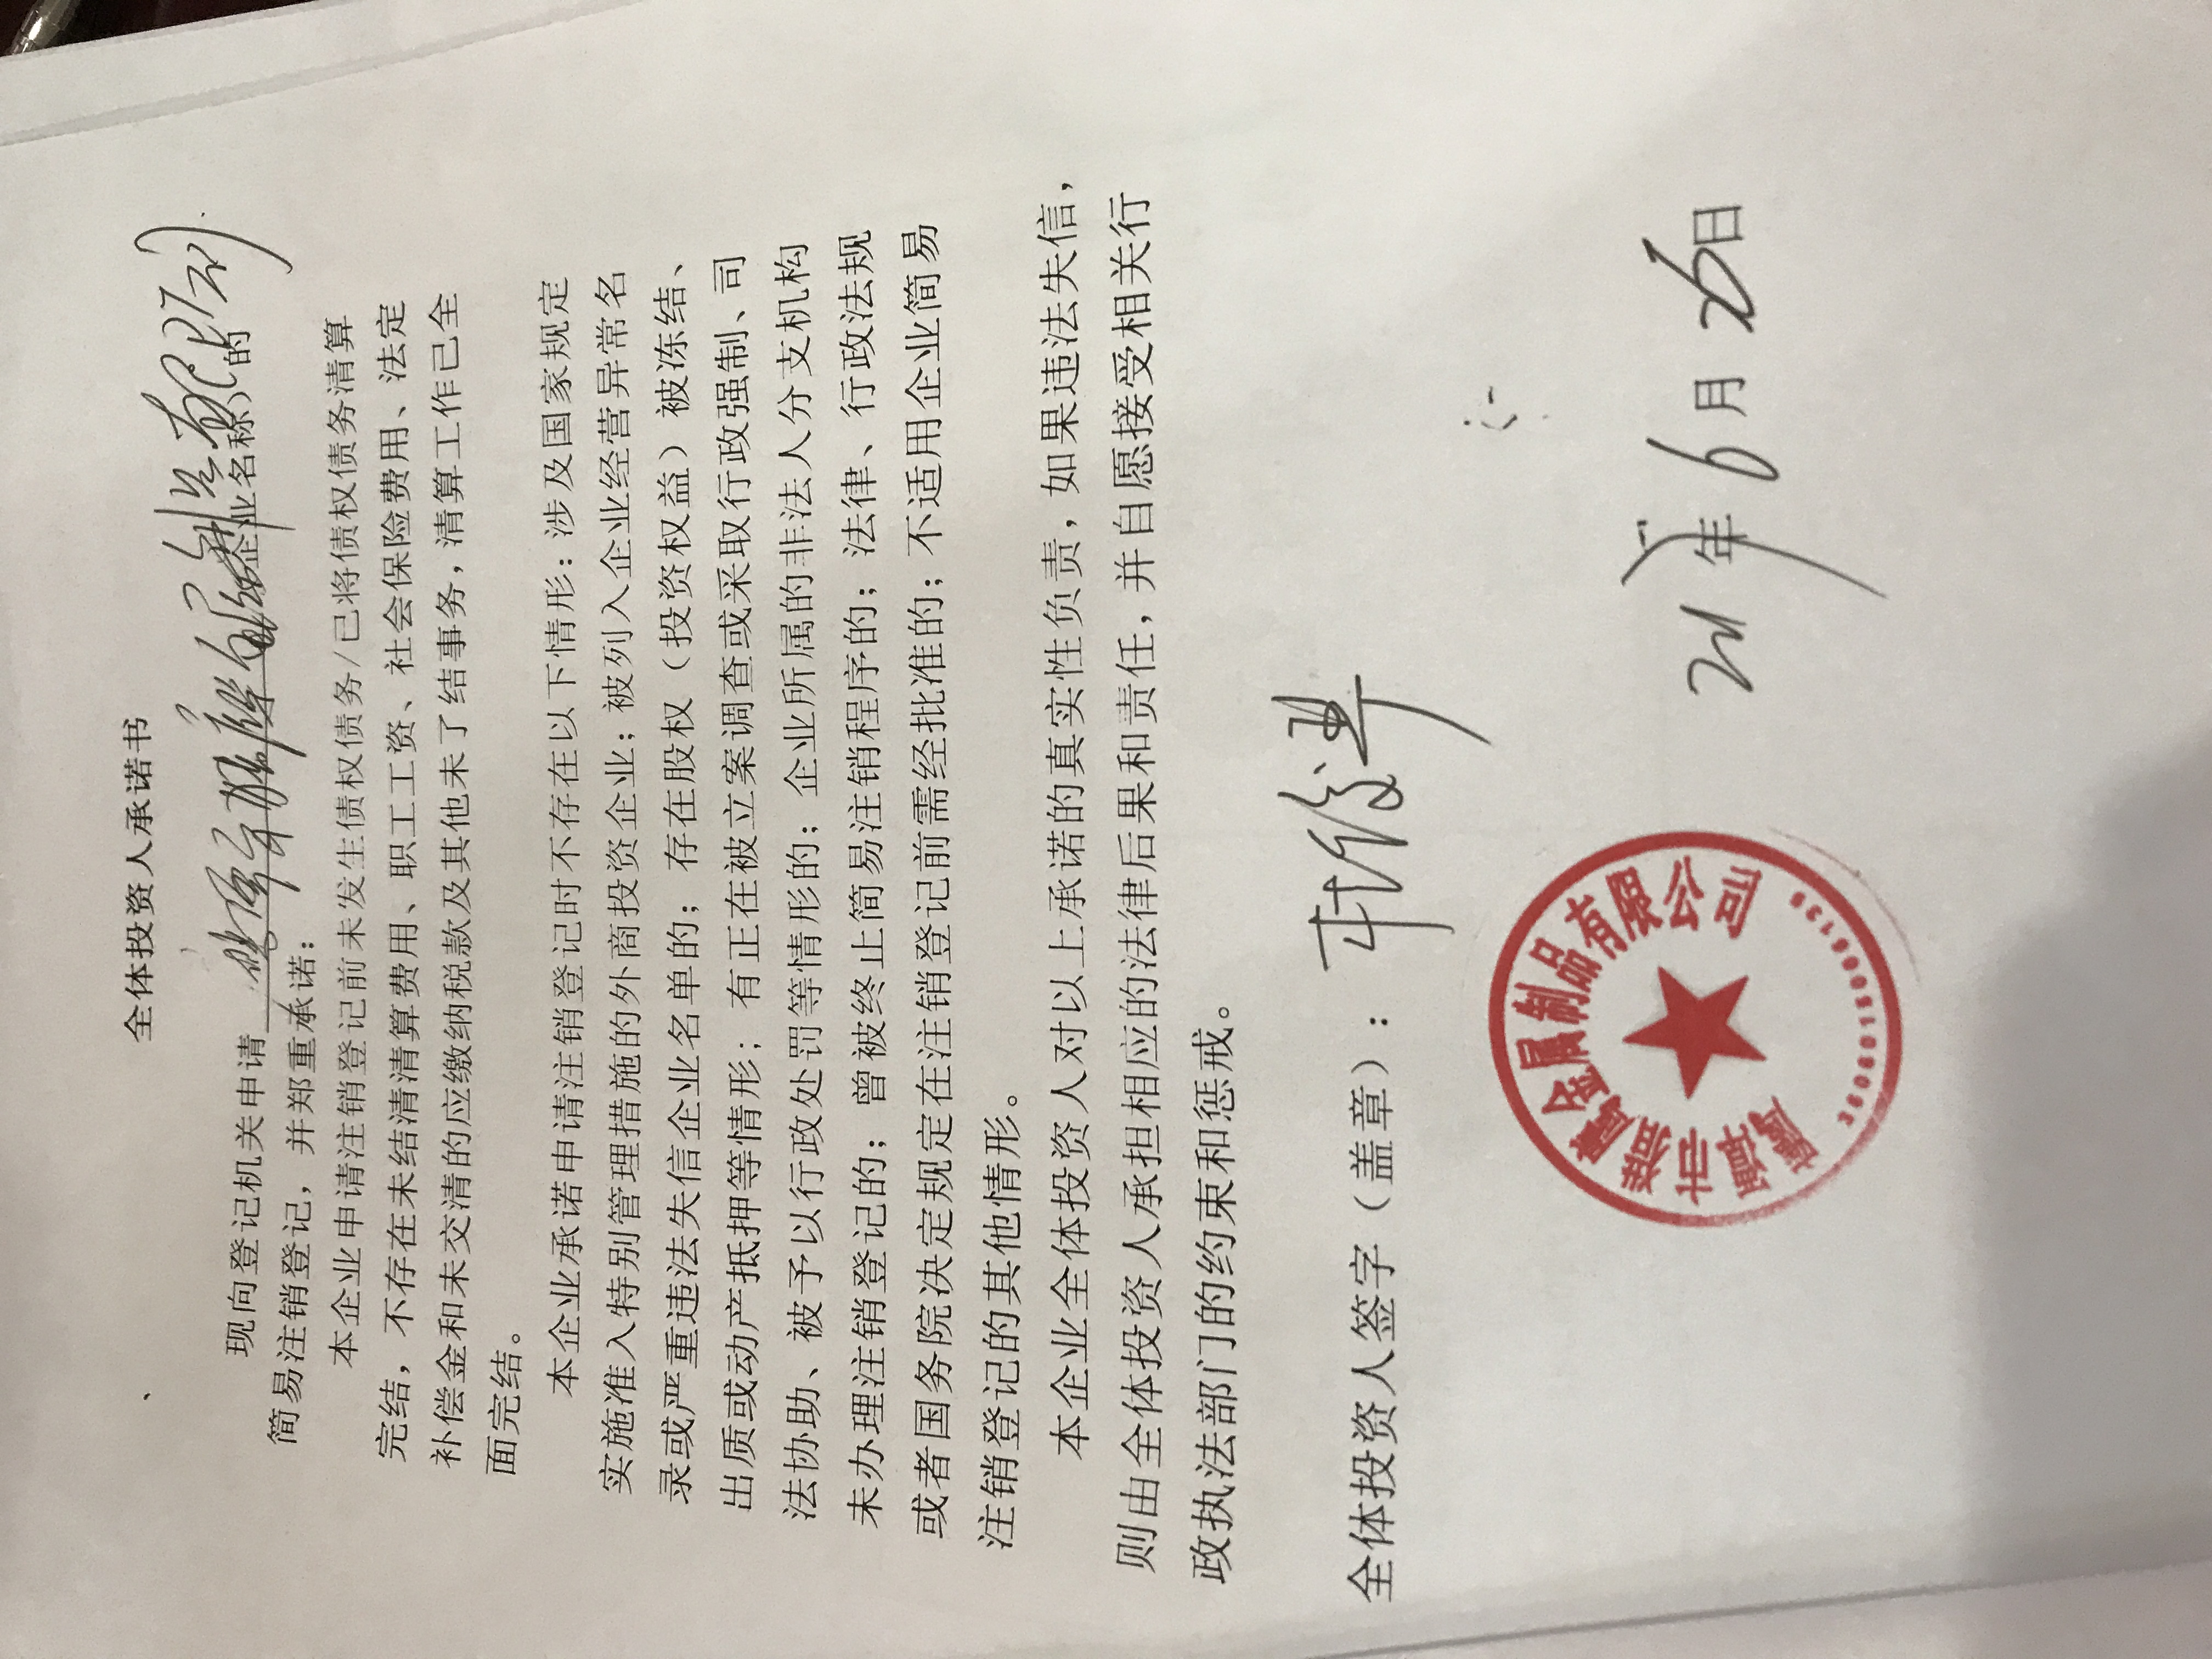 全体投资人承诺书
现向登记机关申请 企业名称的
简易注销登记，并郑重承诺：
本企业申请注销登记前未发生债权债务/已将债权债务清算
完结，不存在未结清清算费用、职工工资、社会保险费用、法定
补偿金和未交清的应缴纳税款及其他未了结事务，清算工作已全
面完结。
本企业承诺申请注销登记时不存在以下情形：涉及国家规定
实施准入特别管理措施的外商投资企业；被列入企业经营异常名
录或严重违法失信企业名单的；存在股权（投资权益）被冻结、
出质或动产抵押等情形；有正在被立案调查或采取行政强制、司
法协助、被予以行政处罚等情形的；企业所属的非法人分支机构
未办理注销登记的；曾被终止简易注销程序的；法律、行政法规
或者国务院决定规定在注销登记前需经批准的；不适用企业简易
注销登记的其他情形。
本企业全体投资人对以上承诺的真实性负责，如果违法失信，
则由全体投资人承担相应的法律后果和责任，并自愿接受相关行
政执法部门的约束和惩戒。
全体投资人签字（盖章）：
金属制品有限公司
年 6 月 26 日